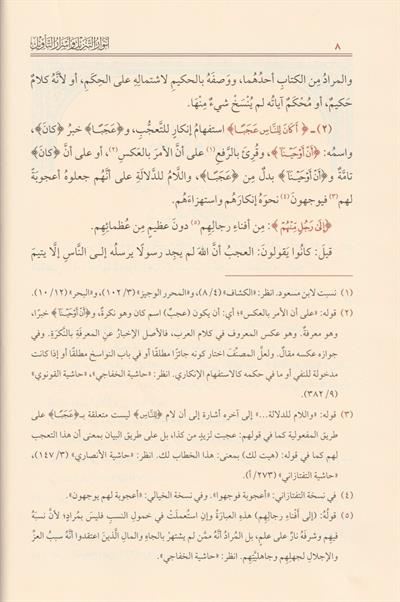 ٨
أنوار التنزيل وأسرار التأويل
والمرادُ مِن الكتابِ أحدُهُما، ووصفَهُ بالحكيمِ لاشتمالِهِ على الحِكَمِ، أو لأنَّهُ كلامُ
حكيمٍ، أو مُحْكَمٌ آياتُه لم يُنْسَخْ شيءٌ مِنْهَا.
(٢) - ﴿أَكَانَ لِلنَّاسِ عَجَبًا﴾ استفهامُ إنكارٍ للتَّعجُّبِ، و﴿عَجَبًا﴾ خبرُ ﴿كَانَ﴾،
واسمُه: ﴿أَنْ أَوْحَيْنَا﴾، وقُرِئَ بالرَّفعِ(١) على أنَّ الأمرَ بالعَكسِ(٢)، أو على أنَّ ﴿كَانَ﴾
تامَّةٌ و﴿أَنْ أَوْحَيْنَا﴾ بدلٌ مِن ﴿عَجَبًا﴾، واللَّامُ للدَّلالةِ على أنَّهُم جعلوهُ أعجوبَةً
لهم(٣) فيوجهونَ(٤) نحوَهُ إنكارَهُم واستهزاءَهُم.
﴿إِلَىٰ رَجُلٍ مِنْهُمْ﴾: مِن أفناءِ رجالِهِم(٥) دونَ عظيمٍ مِن عُظمائِهِم.
قيلَ: كانُوا يَقولونَ: العجبُ أنَّ اللهَ لم يجِد رسولًا يرسلُه إلى النَّاسِ إلَّا يتيمَ
(١) نسبت لابن مسعود. انظر: «الكشاف» (٤/ ٨)، و«المحرر الوجيز» (٣/ ١٠٢)، و«البحر» (١٢/ ١٠).
(٢) قوله: «على أن الأمر بالعكس»؛ أي: أن يكون (عجبٌ) اسم كان وهو نكرةٌ، و﴿أَنْ أَوْحَيْنَا﴾ خبرًا،
وهو معرفةٌ. وهو عكس المعروف في كلام العرب، فالأصل الإخبارُ عن المعرفةِ بالنَّكِرَة. وفي
جوازه عكسه مقالٌ. ولعلَّ المصنِّفَ اختار كونه جائزًا مطلقًا أو في باب النواسخ مطلقًا أو إذا كانت
مدخولة للنفي أو ما في حكمه كالاستفهام الإنكاري. انظر: «حاشية الخفاجي»، «حاشية القونوي»
(٩/ ٣٨٢).
(٣) قوله: «واللام للدلالة...» إلى آخره أشارة إلى أن لام ﴿لِلنَّاسِ﴾ ليست متعلقة بـ﴿عَجَبًا﴾ على
طريق المفعولية كما في قولهم: عجبت لزيدٍ من كذا، بل على طريق البيان بمعنى أن هذا التعجب
لهم كما في قوله: (هيت لك) بمعنى: هذا الخطاب لك. انظر: «حاشية الأنصاري» (٣/ ١٤٧)،
«حاشية التفتازاني» (٢٧٣/ أ).
(٤) في نسخة التفتازاني: «أعجوبة فوجهوا». وفي نسخة الخيالي: «أعجوبة لهم يوجهون».
(٥) قولُهُ: (إلى أفناءِ رجالِهِم) هذهِ العبارَةُ وإن استعملَتْ في خمولِ النسبِ فليسَ بمُرادٍ؛ لأنَّ نسبَهُ
فيهِم وشرفَهُ نارٌ على علمٍ، بل المُرادُ أنَّهُ ممَّن لم يشتهرْ بالجاهِ والمالِ الَّذَينَ اعتقدُوا أنَّهُ سببُ العزِّ
والإجلالِ لجهلِهم وجاهليَّتِهم. انظر: «حاشية الخفاجي».